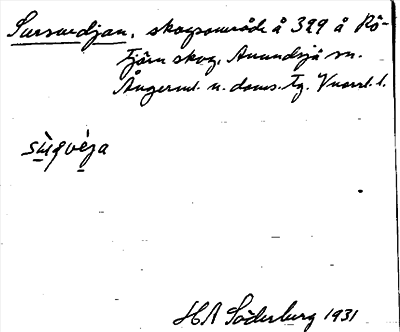 Sursvedjan, skogsområde å 329 å Rö-
tjärn skog, Anundsjö sn.
Ångerml. n. doms. tg. Vnorrl. l.
sùqvèja
HA Söderberg 1931